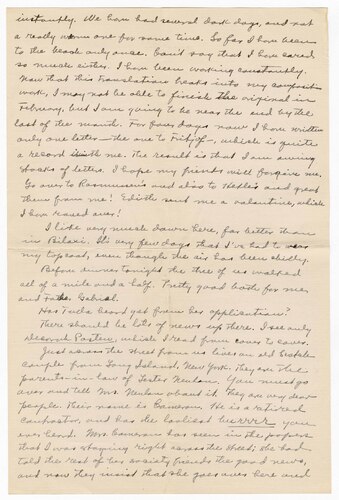 instantly. We have had several dark days, and not
a really warm one for some time. So far I have been
to the beach only once. Can't say that I have cared
so much either. I have been working constantly.
Now that this translation breaks into my
work, I may not be able to finish the original in
February, but I am going to be near the end by the
last of the month. For four days now I have written
only one letter — the one to — which is quite
a record with me. The result is that I am owing
stacks of letters. I hope my friends will forgive me.
Go over to Rasmussens and also to and greet
them from me! Edith sent me a valentine, which
I have raved over!
I like very much down here, far better than
in Biloxi. It's very few days that I've had to wear
my topcoat, even though the air has been chilly.
Before dinner tonight the three of us walked
all of a mile and a half. Pretty good both for me
and Father Gabriel.
Has Tuda heard yet from her application?
There should be lots of news up there. I see only
Decorah Posten, which I read from cover to cover.
Just across the street from us lives an old
couple from Long Island, New York. They are the
parents-in-law of Lester. You must go
over and tell Mrs. about it. They are very dear
people. Their name is Cameron. He is a retired
contractor, and has the loveliest burrrr you
ever heard. Mrs. Cameron has seen in the papers
that I was staying right across the street; she had
told the rest of her society friends the good news,
and now they insist that she goes over here and